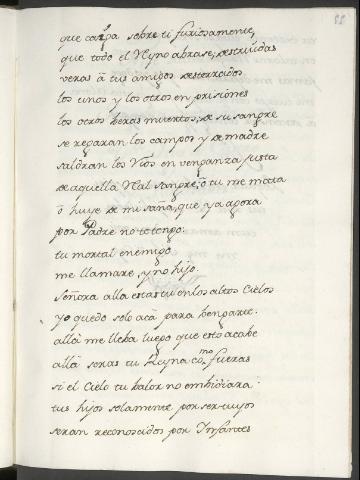 82
que caÿga sobre ti furiosamente,
que todo el Reyno abrase, destruidas
veras a tus amigos desterrados
los unos y los otros en prisiones
los otros beras muertos, de su sangre
se regaran los campos y de madre
saldran los Rios en venganza justa
de aquella Real sangre; ó tu me mata
ó huye de mi saña, que ya agora
por Padre no te tengo:
tu mortal enemigo
me llamare, y no hijo.
Señora alla estas tu en los altos Cielos
yo quedo solo acá para bengarte.
allá me lleba luego que esto acabe
allá seras tu Reyna como fueras
si el Cielo tu balor no embidiara:
tus hijos solamente por ser tuyos
seran reconoscidos por Infantes